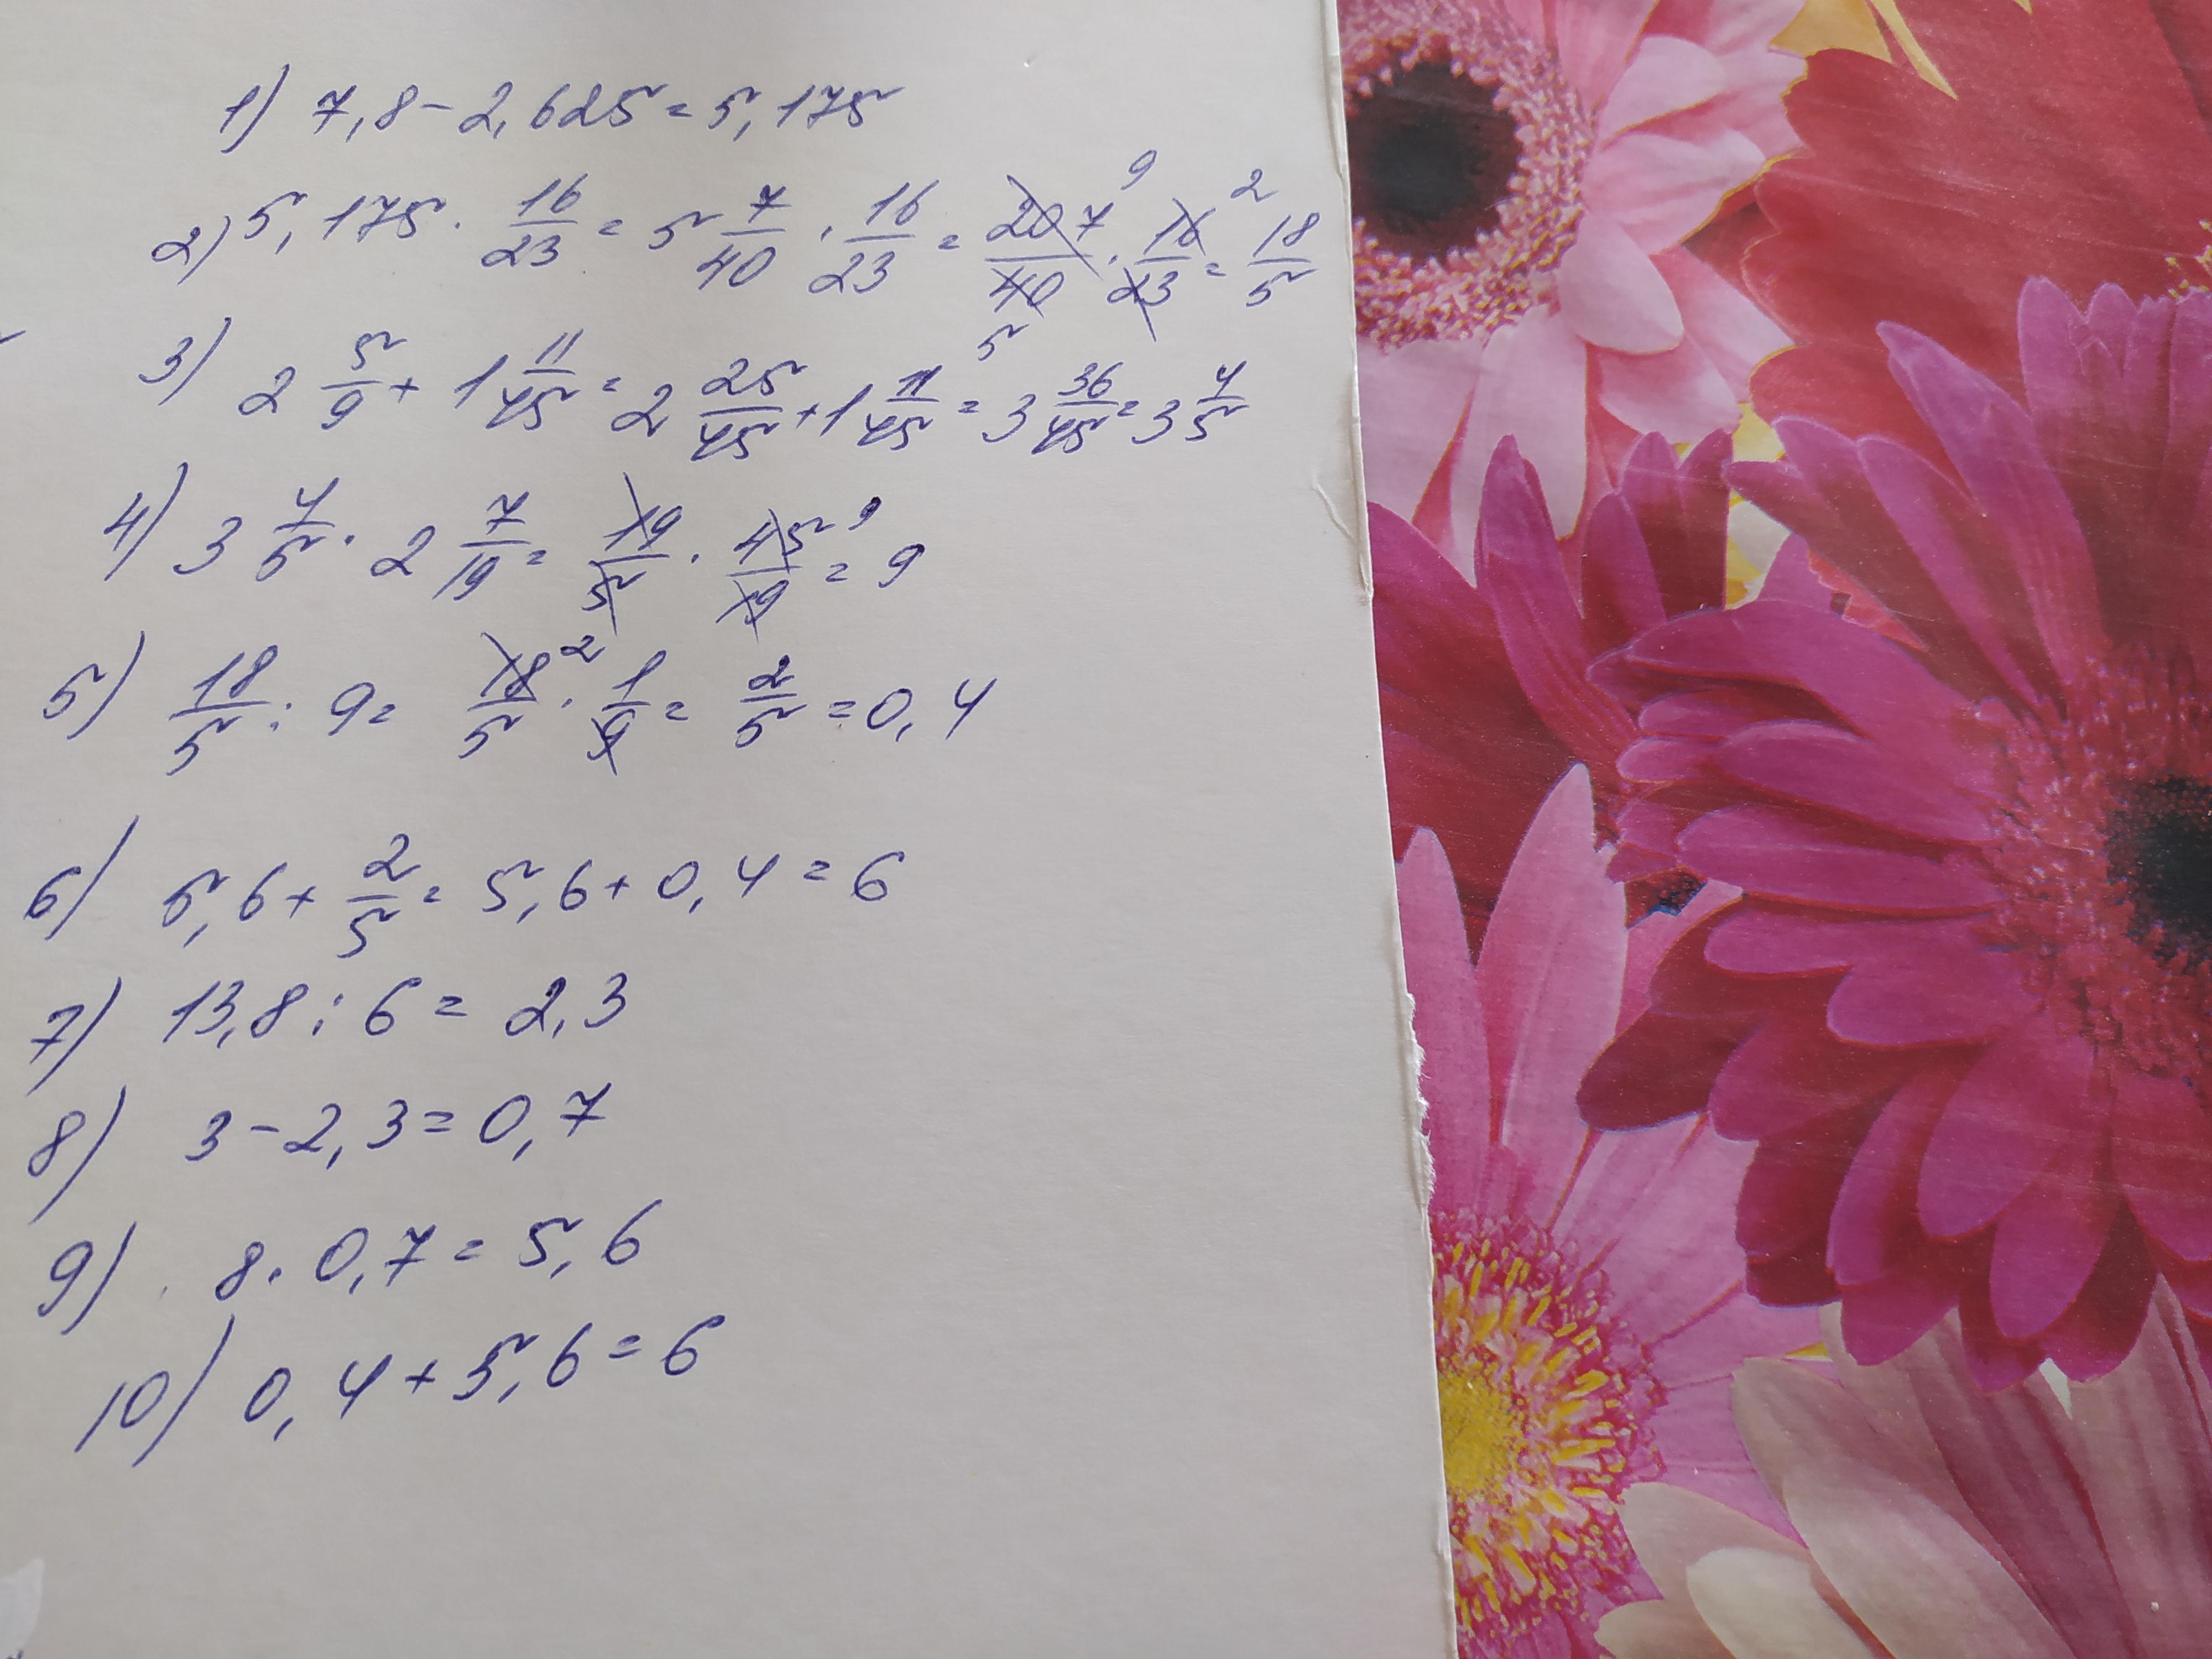 1) 7,8-2,625=5,175
2) 5,175 · 16/23 = 5 7/40 · 16/23 = 207/40 9 5 · 16/23 2 = 18/5
3) 2 5/9 + 1 11/45 = 2 25/45 + 1 11/45 = 3 36/45 = 3 4/5
4) 3 4/5 · 2 7/19 = 19/5 · 45/19 9 = 9
5) 18/5 : 9 = 18/5 2 · 1/9 = 2/5 = 0,4
6) 5,6 + 2/5 = 5,6 + 0,4 = 6
7) 13,8 : 6 = 2,3
8) 3-2,3=0,7
9) 8·0,7=5,6
10) 0,4+5,6=6